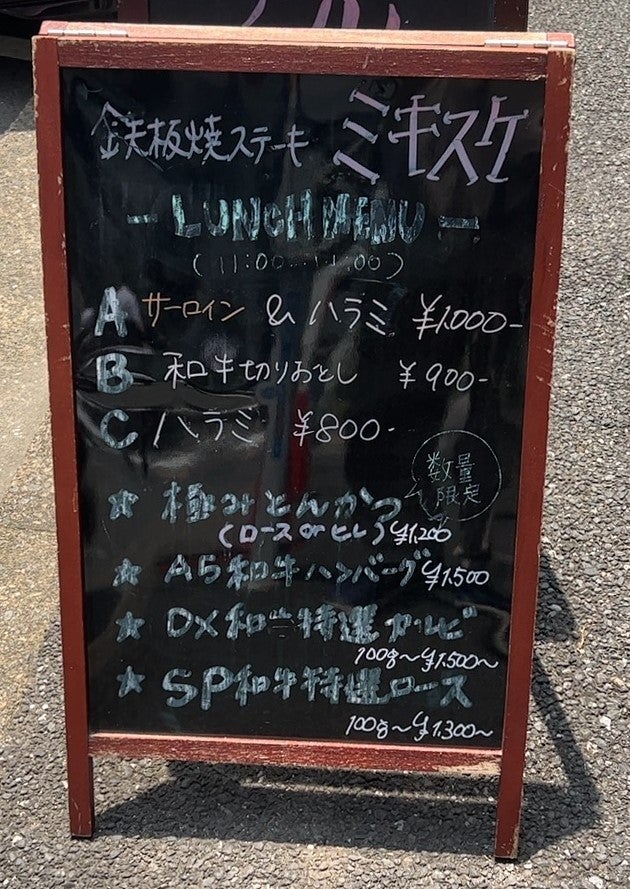 鉄板焼ステーキ ミキスケ
- LUNCH MENU -
A サーロイン & ハラミ ¥1,000-
B 和牛切りおとし ¥900-
C ハラミ ¥800-
数量
限定
★ 極みとんかつ
(ロース or ヒレ) ¥1,200
★ A5和牛ハンバーグ ¥1,500
★ DX和牛特選カルビ
100g〜¥1,500〜
★ SP和牛特選ロース
100g〜¥1,300〜